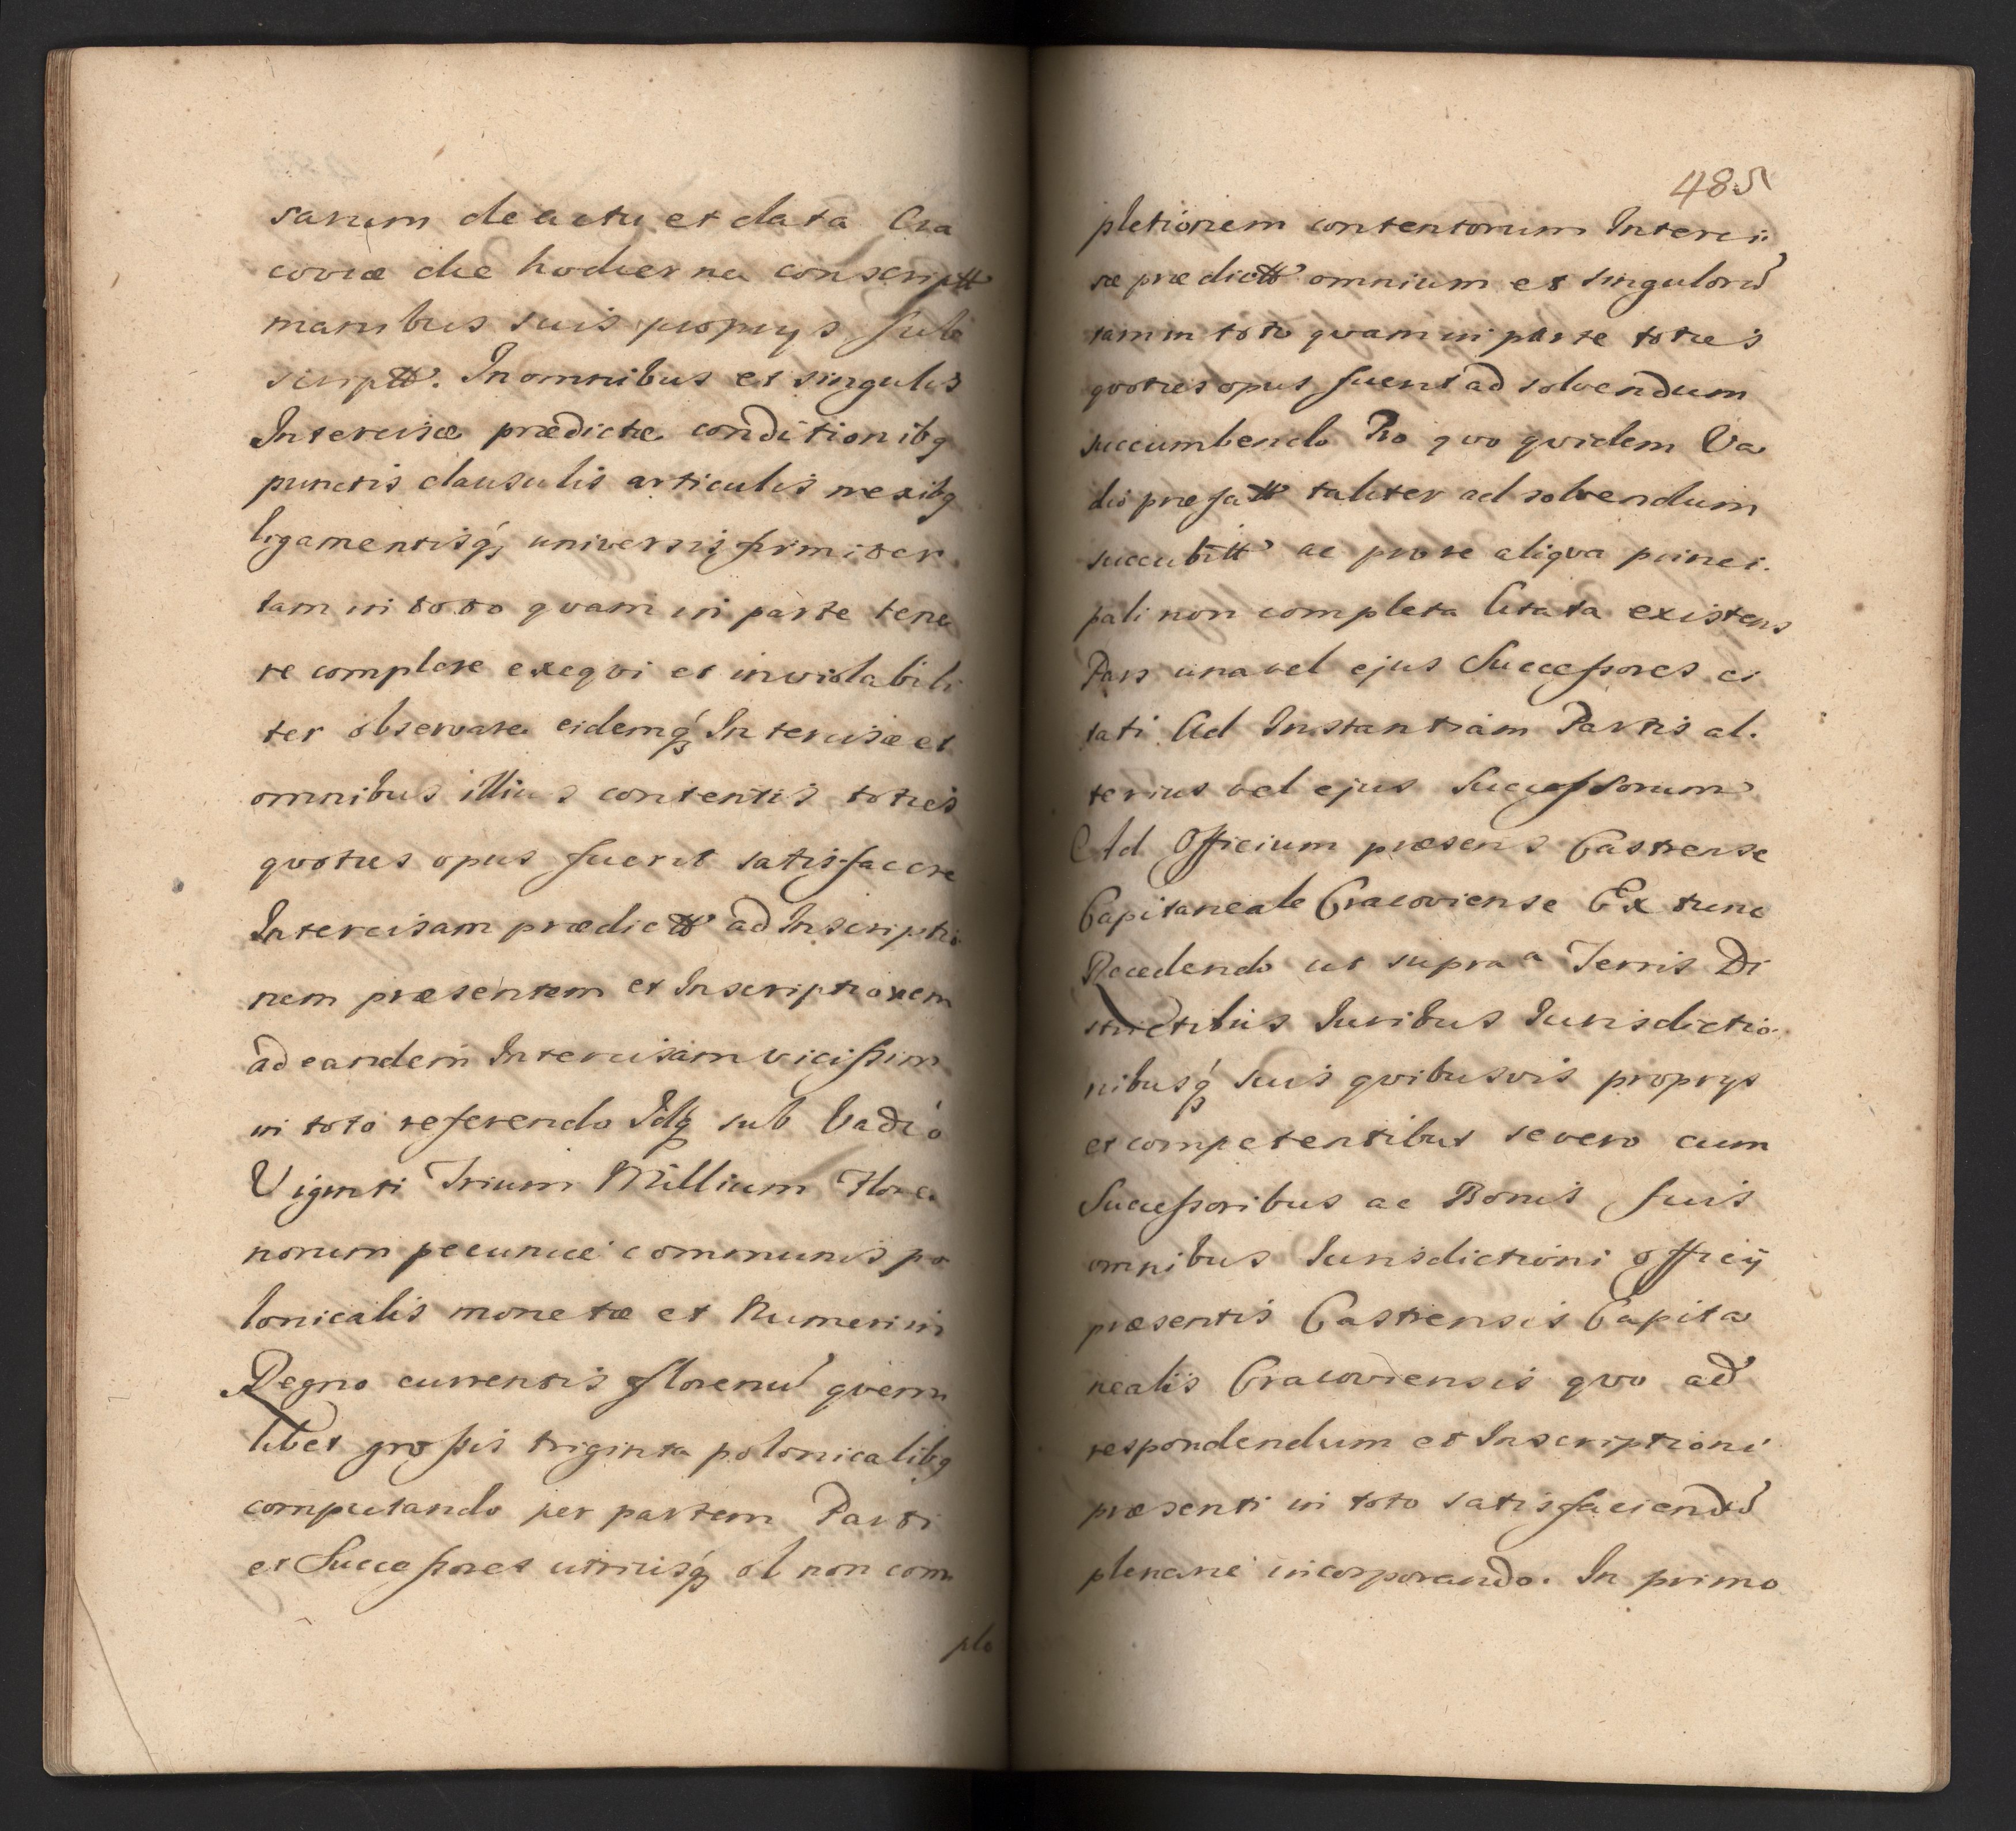 sarum de actu et data Cra
coviæ die hodierna conscriptt
manibus suis proprys sub
scriptt. In omnibus et singulis
Intercisæ prædictæ conditionibq
punctis clausulis articulis nexibq
ligamentisq, universis firmiter
tam in toto qvam in parte tene
re complere exeqvi et inviolabili
ter observare eidemq Intercisæ et
omnibus illius contentis toties
qvoties opus fuerit satisfacere
Intercisam prædictt ad Inscriptio
nem præsentem et Inscriptionem
ad eandem Intercisam vicissim
in toto referendo Idq sub Vadio
Viginti Trium Millium Flore
norum pecuniæ communis po
lonicalis monetæ et Numeri in
Regno currentis florenu qvem
libet grossis triginta polonicalibq
computando per partem Parti
et Successores utriusq ob non com
ple
485
pletionem contentorum Interci:
sæ prædictt omnium et singuloru
tam in toto qvam in parte toties
qvoties opus fuerit ad solvendum
succumbendo Pro qvo qvidem Va
dio præfatt taliter ad solvendum
succubitt ac pro re aliqva princi.
pali non completa Citata existens
Pars una vel ejus Successores ci
tati Ad Instantiam Partis al.
terius vel ejus Successorum
Ad Officium præsens Castrense
Capitaneale Cracoviense Ex tunc
Recedendo ut supra a Terris Di
strictibus Iuribus Iurisdictio.
nibusq suis qvibusvis proprys
et competentibus se vero cum
Successoribus ac Bonis suis
omnibus Iurisdictioni officÿ
præsentis Castrensis Capita
nealis Cracoviensis qvo ad
respondendum et Inscriptioni
præsenti in toto satisfaciendu
plenarie incorporando. In primo